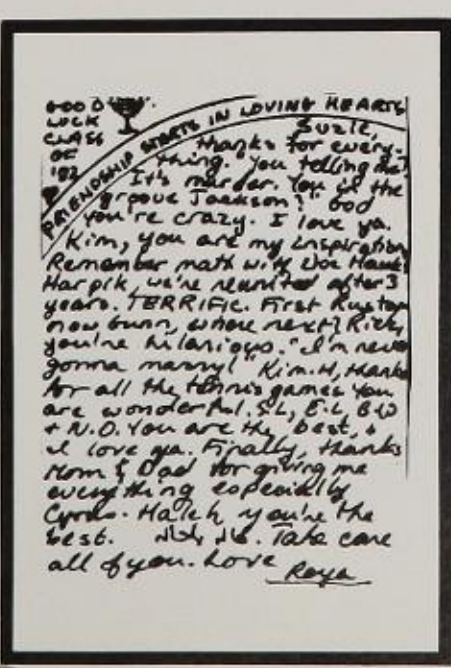 GOOD
LUCK
CLASS
OF
'82
FRIENDSHIP STARTS IN LOVING HEARTS
Suzie,
thanks for every-
thing. "You telling me?
It's murder. You in the
groove Jackson?" God
you're crazy. I love ya.
Kim, you are my inspiration
Remember math with Doc
Harpik, we're reunited after 3
years. TERRIFIC. First Ruxton
now bunn, where next? Ricky
you're hilarious. "I'm never
gonna marry!" Kim.H, thanks
for all the tennis games you
are wonderful. S.L, E.L
+ N.O. You are the best, &
I love ya. Finally, thanks
Mom & Dad for giving me
everything especially
Cyrus. Haleh, you're the
best. Take care
all of you. Love
Roya